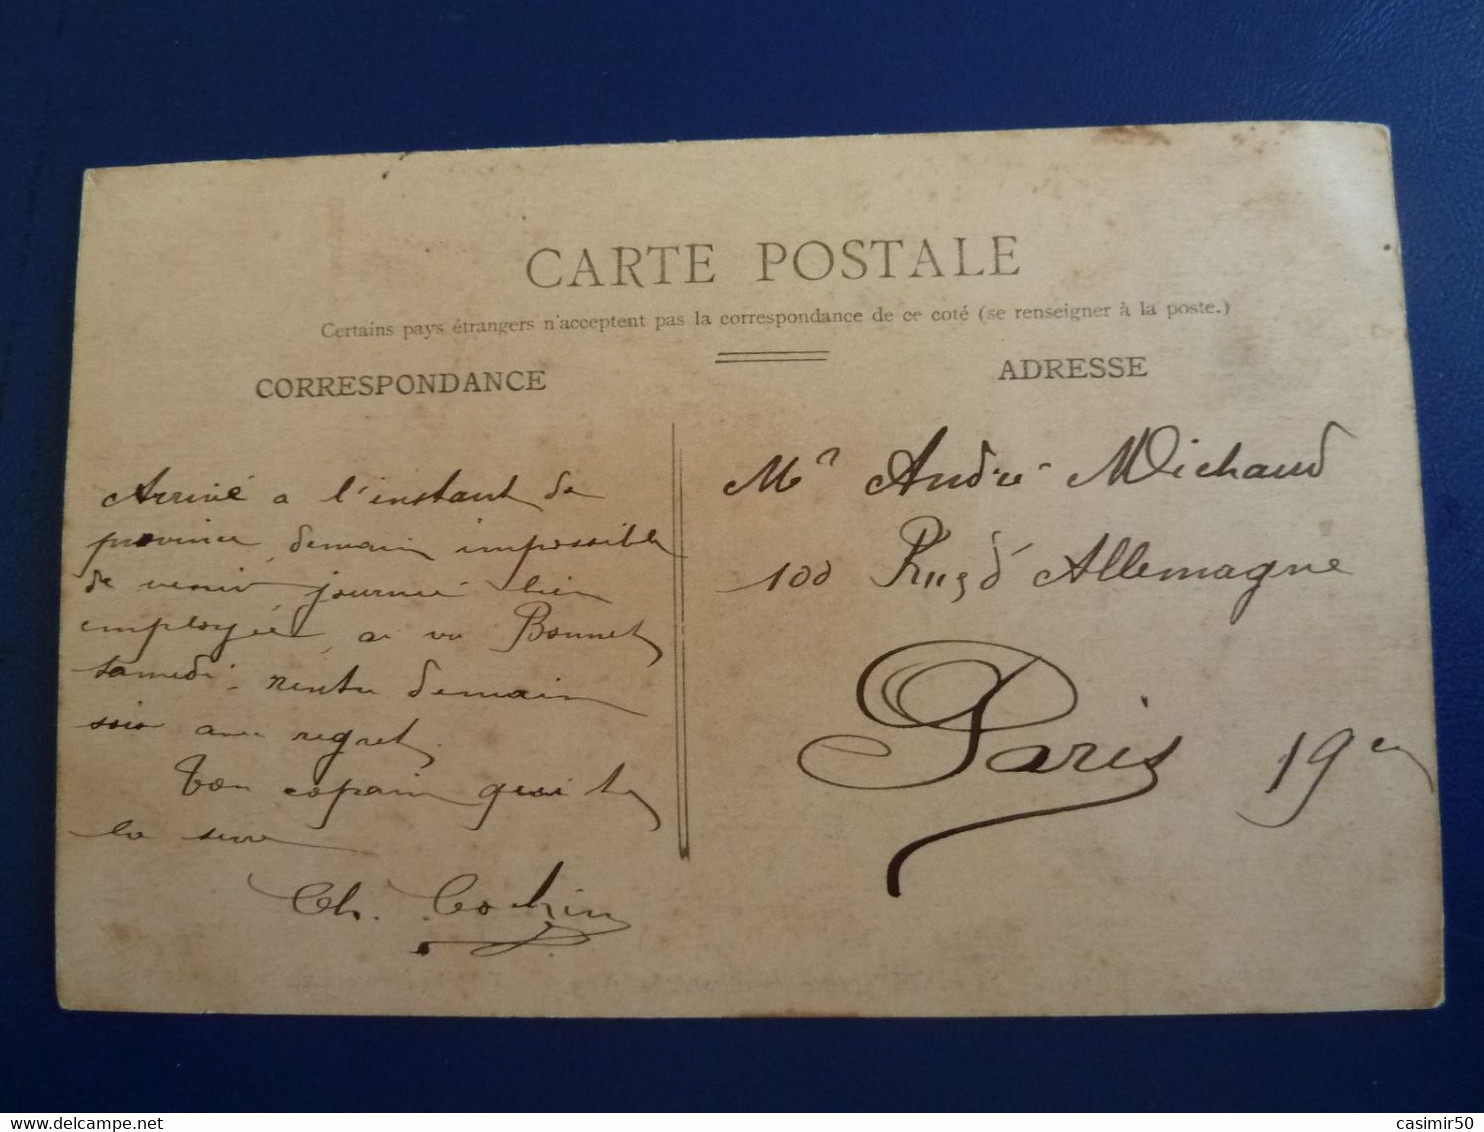 CARTE POSTALE
Certains pays étrangers n'acceptent pas la correspondance de ce coté (se renseigner à la poste.)
CORRESPONDANCE
Arrivé a l'instant de
province, demain impossible
de venir journée bien
employée, ai vu Bonnet
samedi. rentre demain
soir avec regret.
Ton copain qui te
la serre
Ch. Cochin
ADRESSE
Mr André Michaud
100 Rue d'Allemagne
Paris 19e
casimir50